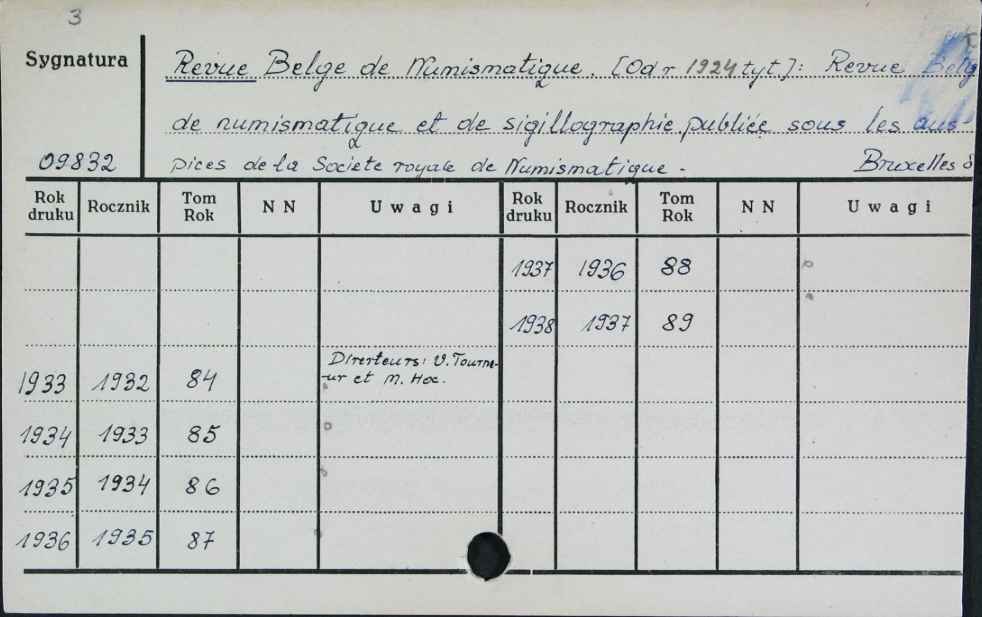 3
Sygnatura
Revue Belge de Numismatique. [Od r 1924 tyt.]: Revue Belg
de numismatique et de sigillographie publiée sous les aus-
09832 pices de la Societe royale de Numismatique. Bruxelles 8
Rok druku Rocznik Tom Rok NN Uwagi Rok druku Rocznik Tom Rok NN Uwagi
1937 1936 88
1938 1937 89
1933 1932 84 Directeurs: V. Tourne-
ur et M. Hoc.
1934 1933 85
1935 1934 86
1936 1935 87